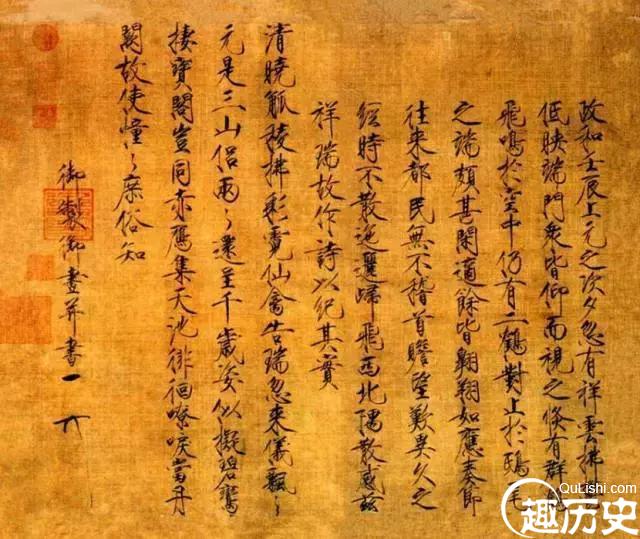 政和壬辰上元之次夕忽有祥雲拂
低映端門衆皆仰而視之倏有群鶴
飛鳴於空中仍有二鶴對止於鴟尾
之端頗甚閑適餘皆翱翔如應奏節
往來都民無不稽首瞻望歎異久之
經時不散迤邐歸飛西北隅散感茲
祥瑞故作詩以紀其實
清曉觚稜拂彩霓仙禽告瑞忽來儀飄〻
元是三山侶兩〻還呈千歲姿似擬碧鸞
棲寶閣豈同赤鴈集天池徘徊嘹唳當丹
闕故使憧〻庶俗知
御製御畫并書
QuLishi.com
趣历史